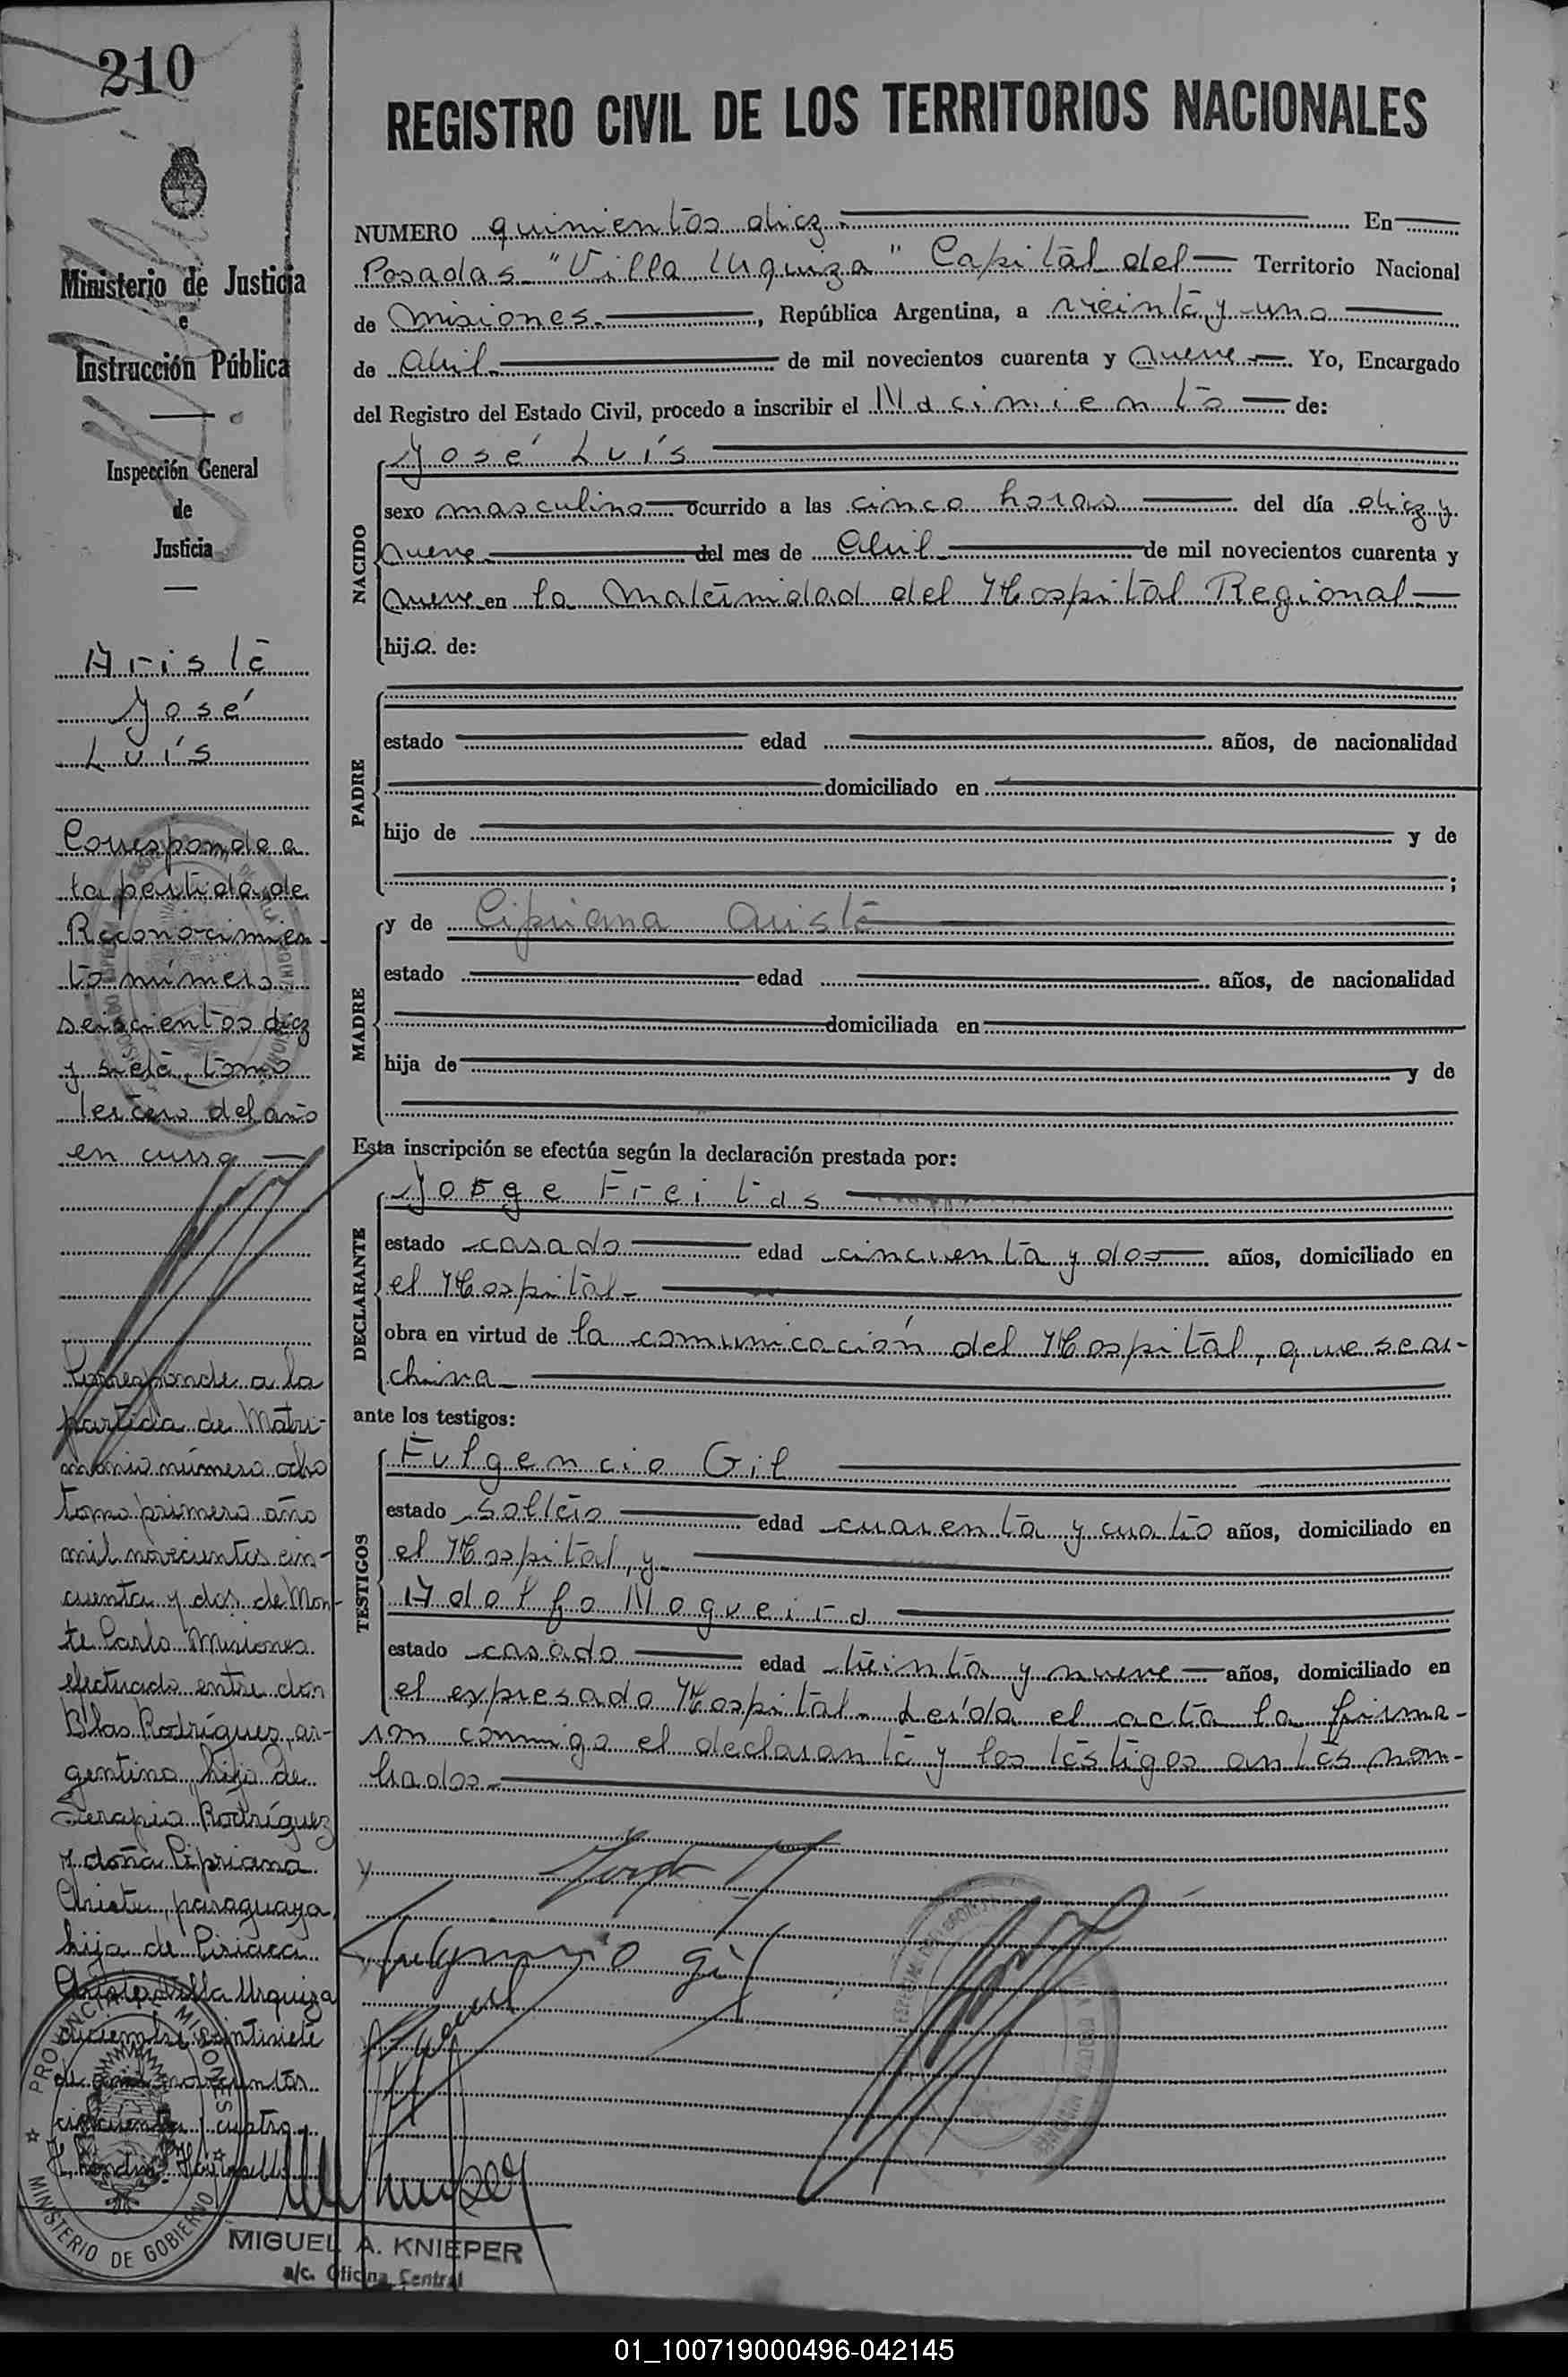 210
Ministerio de Justicia
e
Instrucción Pública
Inspección General
de
Justicia
Ariste
José
Luís
Corresponde a
la partida de
Reconocimien-
to número
seiscientos diez
y siete, tomo
tercero del año
en curso
Corresponde a la
partida de Matri-
monio número ocho
tomo primero año
mil novecientos cin-
cuenta y dos de Mon-
te Carlo Misiones
efectuado entre don
Blas Rodríguez, ar-
gentino, hijo de
Serapio Rodríguez
y doña Cipriana
Ariste, paraguaya
hija de Ciriaca
Ariste. Villa Urquiza
diciembre veintisiete
de mil novecientos
cincuenta y cuatro
PROVINCIA DE MISIONES
MINISTERIO DE GOBIERNO
MIGUEL A. KNIEPER
a/c. Oficina Central
REGISTRO CIVIL DE LOS TERRITORIOS NACIONALES
NUMERO quinientos diez. En
Posadas "Villa Urquiza" Capital del Territorio Nacional
de Misiones, República Argentina, a veinte y uno
de Abril de mil novecientos cuarenta y nueve. Yo, Encargado
del Registro del Estado Civil, procedo a inscribir el Nacimiento de:
NACIDO
José Luís
sexo masculino ocurrido a las cinco horas del día diez y
nueve del mes de Abril de mil novecientos cuarenta y
nueve en la Maternidad del Hospital Regional
hijo. de:
PADRE
estado edad años, de nacionalidad
domiciliado en
hijo de y de
;
MADRE
y de Cipriana Ariste
estado edad años, de nacionalidad
domiciliada en
hija de y de
Esta inscripción se efectúa según la declaración prestada por:
DECLARANTE
Jorge Freitas
estado casado edad cincuenta y dos años, domiciliado en
el Hospital
obra en virtud de la comunicación del Hospital, que se ar-
chiva
ante los testigos:
TESTIGOS
Fulgencio Gil
estado soltero edad cuarenta y cuatro años, domiciliado en
el Hospital, y
Adolfo Nogueira
estado casado edad treinta y nueve años, domiciliado en
el expresado Hospital. Leída el acta la firma-
ron conmigo el declarante y los testigos antes nom-
brados
Fulgencio Gil
01_100719000496-042145